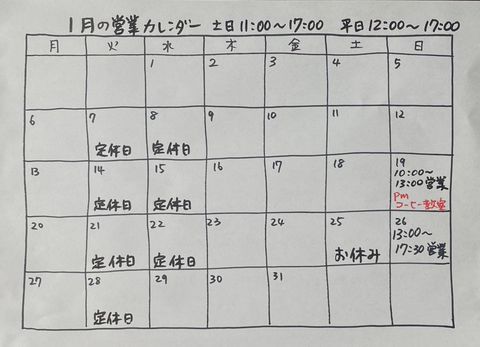 1月の営業カレンダー 土日11:00〜17:00 平日12:00〜17:00
月 火 水 木 金 土 日
1 2 3 4 5
6 7 8 9 10 11 12
定休日 定休日
13 14 15 16 17 18 19
10:00〜
13:00営業
定休日 定休日
pm
コーヒー教室
20 21 22 23 24 25 26
13:00〜
17:30営業
定休日 定休日 お休み
27 28 29 30 31
定休日